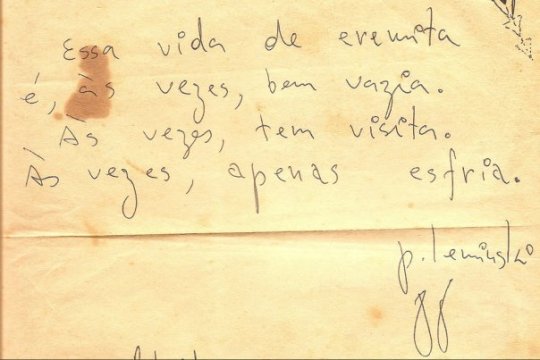 Essa vida de eremita
é, às vezes, bem vazia.
Às vezes, tem visita.
Às vezes, apenas esfria.
p. leminski